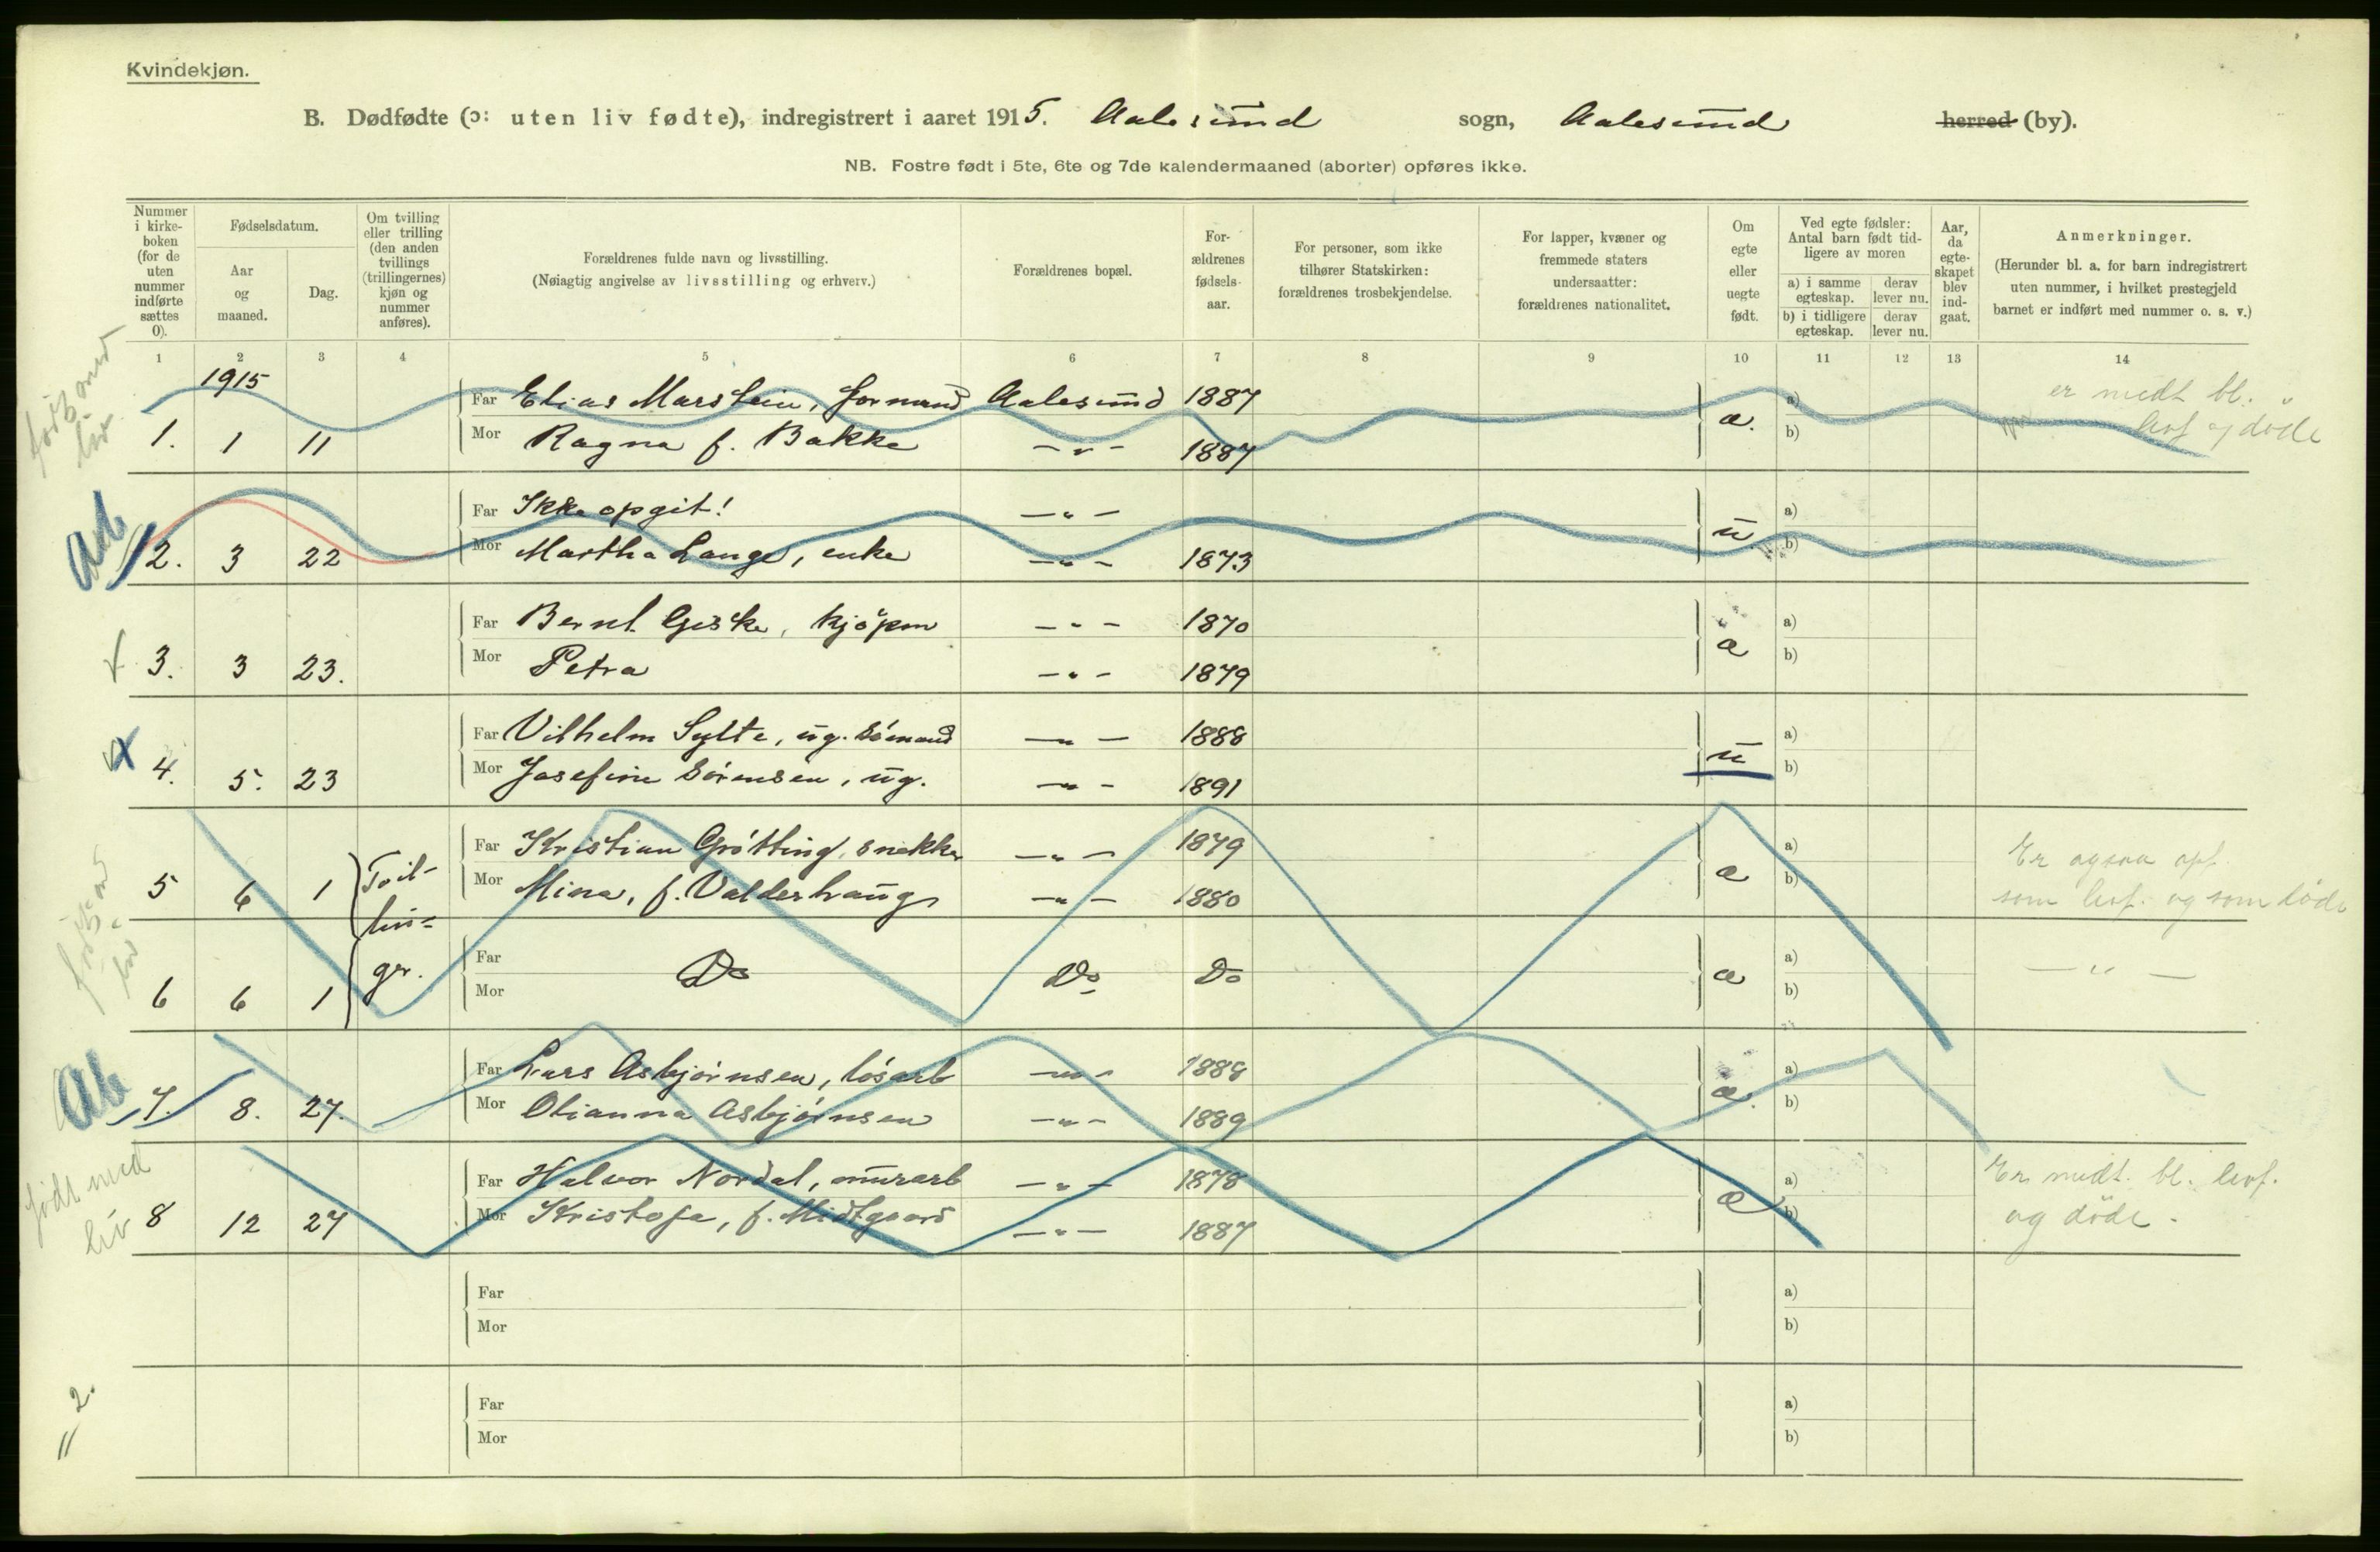 Kvindekjøn.
B. Dødfødte (ɔ: uten liv fødte), indregistrert i aaret 1915. Aalesund sogn, Aalesund herred (by).
NB. Fostre født i 5te, 6te og 7de kalendermaaned (aborter) opføres ikke.
Nummer i kirkeboken (for de uten nummer indførte sættes 0).
Fødselsdatum.
Aar og maaned.
Dag.
Om tvilling eller trilling (den anden tvillings (trillingernes) kjøn og nummer anføres).
Forældrenes fulde navn og livsstilling.
(Nøiagtig angivelse av livsstilling og erhverv.)
Forældrenes bopæl.
Forældrenes fødselsaar.
For personer, som ikke tilhører Statskirken: forældrenes trosbekjendelse.
For lapper, kvæner og fremmede staters undersaatter: forældrenes nationalitet.
Om egte eller uegte født.
Ved egte fødsler: Antal barn født tidligere av moren
a) i samme egteskap. derav lever nu.
b) i tidligere egteskap. derav lever nu.
Aar, da egteskapet blev indgaat.
Anmerkninger.
(Herunder bl. a. for barn indregistrert uten nummer, i hvilket prestegjeld barnet er indført med nummer o. s. v.)
1 2 3 4 5 6 7 8 9 10 11 12 13 14
1915
Far Elias Marstein, formand Aalesund 1887 a) er medt bl.
1. 1 11 Mor Ragna f. Bakke — " — 1887 æ. b) levf og døde
Far Ikke opgit! — " — a)
Ab 2. 3 22 Mor Martha Lange, enke — " — 1873 u b)
Far Bernt Giske, kjøpm — " — 1870 a)
3. 3 23. Mor Petra — " — 1879 æ b)
Far Vilhelm Sylte, ug. sømand — " — 1888 a)
4. 5. 23 Mor Josefine Sørensen, ug. — " — 1891 u b)
Far Kristian Grøtting, snekker — " — 1879 a) Er ogsaa opf.
5 6 1 Tvil- Mor Mina, f. Valderhaug — " — 1880 æ b) som levf. og som døde
lin-
6 6 1 ger. Far Mor Do Do Do æ a) b) — " —
Far Lars Asbjørnsen, løsarb — " — 1888 a)
Ab 7. 8. 27. Mor Olianna Asbjørnsen — " — 1889 æ. b)
født med Far Halvor Nordal, murarb — " — 1878 a) Er medt. bl. levf.
liv 8 12 27 Mor Kristofa, f. Midtgaard — " — 1887 æ b) og døde.
Far a)
Mor b)
2. Far a)
Mor b)